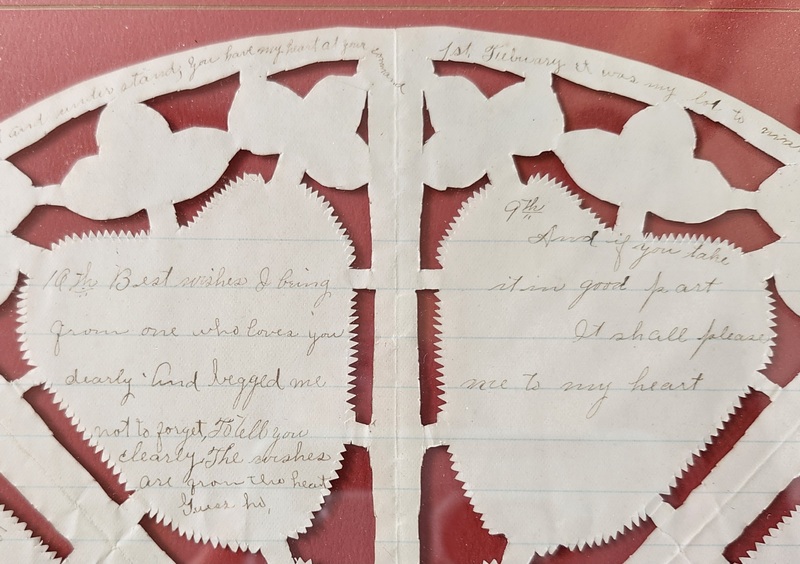 and understand, You have my heart at your command
1st February it was my lot to
10th Best wishes I bring
from one who loves you
dearly And begged me
not to forget, To tell you
clearly The wishes
are from the heart
Guess ho,
9th
And if you take
it in good part
It shall please
me to my heart